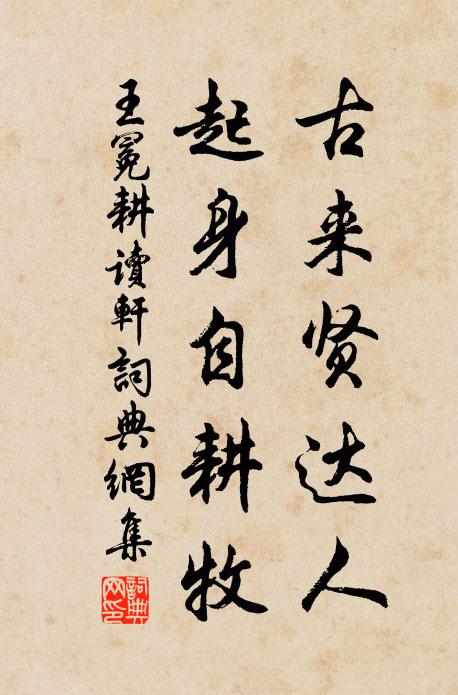 古来贤达人
起身自耕牧
王冕耕讀軒詞典網集
詞典
网印